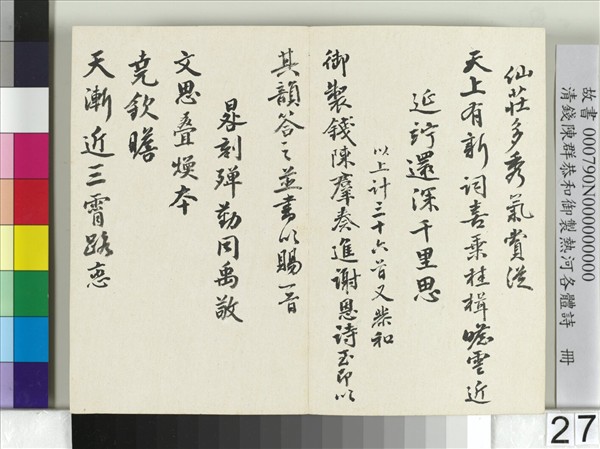 仙莊多秀氣賞從
天上有新詞喜乘桂楫瞻雲近
延竚還深千里思
以上計三十六首又恭和
御製錢陳羣奏進謝恩詩至即以
其韻答之並書以賜一首
晷刻殫勤同禹敬
文思叠煥本
堯欽瞻
天漸近三霄路恋
故書 000790N000000000
清錢陳群恭和御製熱河各體詩 冊
27